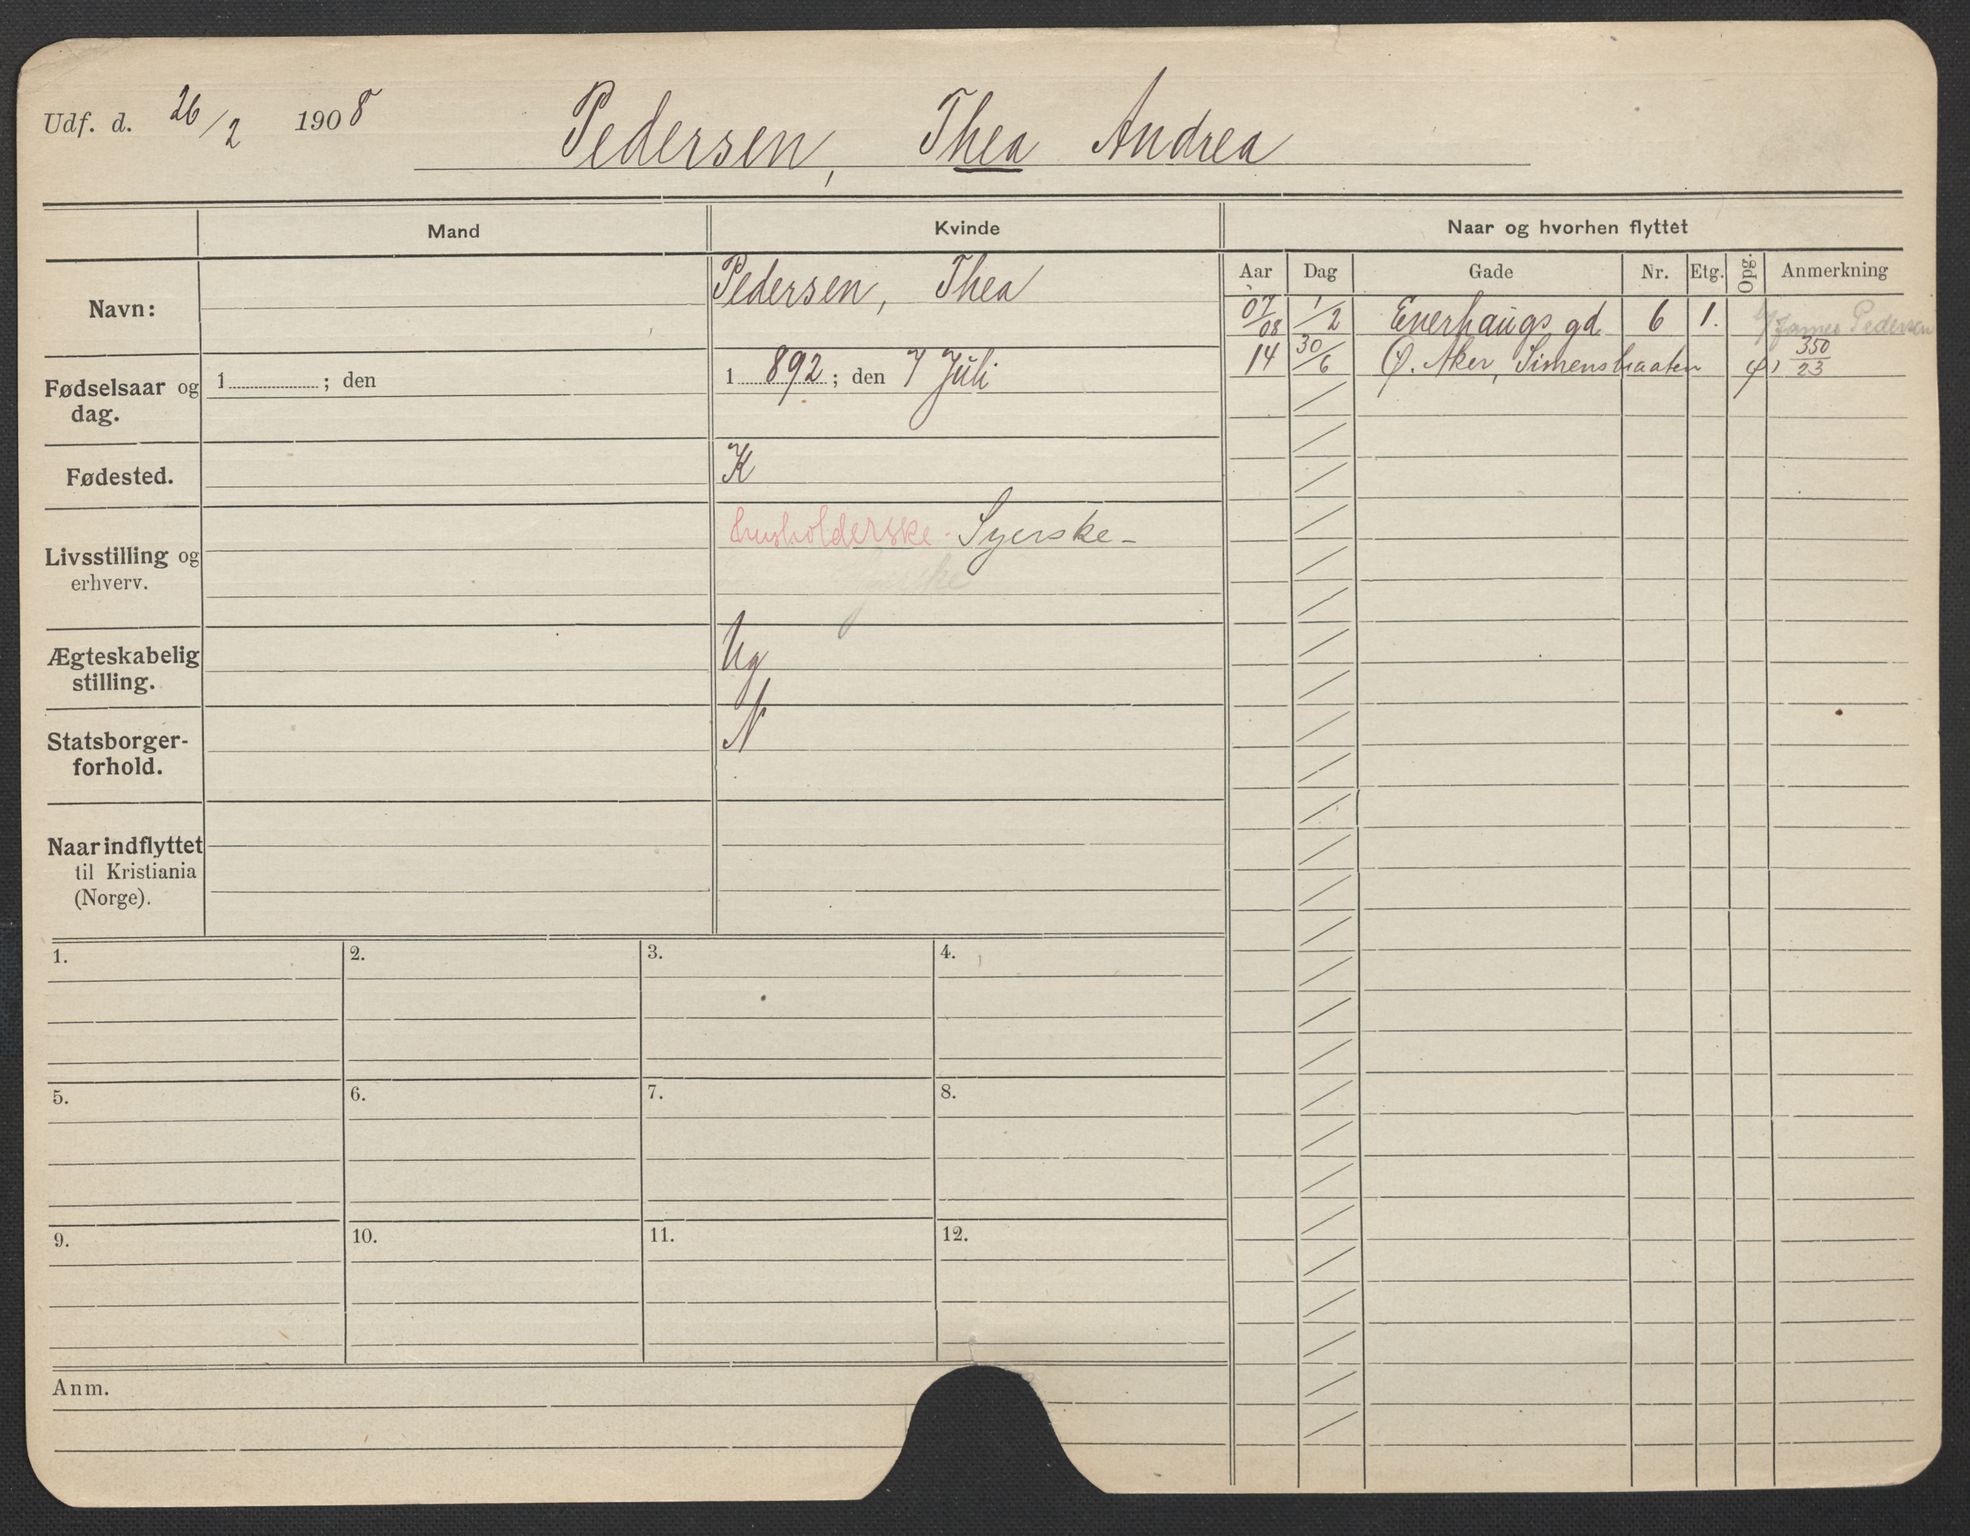 Udf. d. 26/2 1908 Pedersen, Thea Andrea
Mand Kvinde Naar og hvorhen flyttet
Aar Dag Gade Nr. Etg. Opg. Anmerkning
Navn: Pedersen, Thea
07/08 1/2 Enerhaugs gd 6 1. Pedersen
14 30/6 Ø. Aker, Simensbraaten 350/23
Fødselsaar og dag. 1 ; den 1 892 ; den 7 Juli
Fødested. K
Livsstilling og husholderske. Syerske -
erhverv.
Ægteskabelig stilling. Ug
Statsborger-
forhold. N
Naar indflyttet
til Kristiania
(Norge).
1. 2. 3. 4.
5. 6. 7. 8.
9. 10. 11. 12.
Anm.